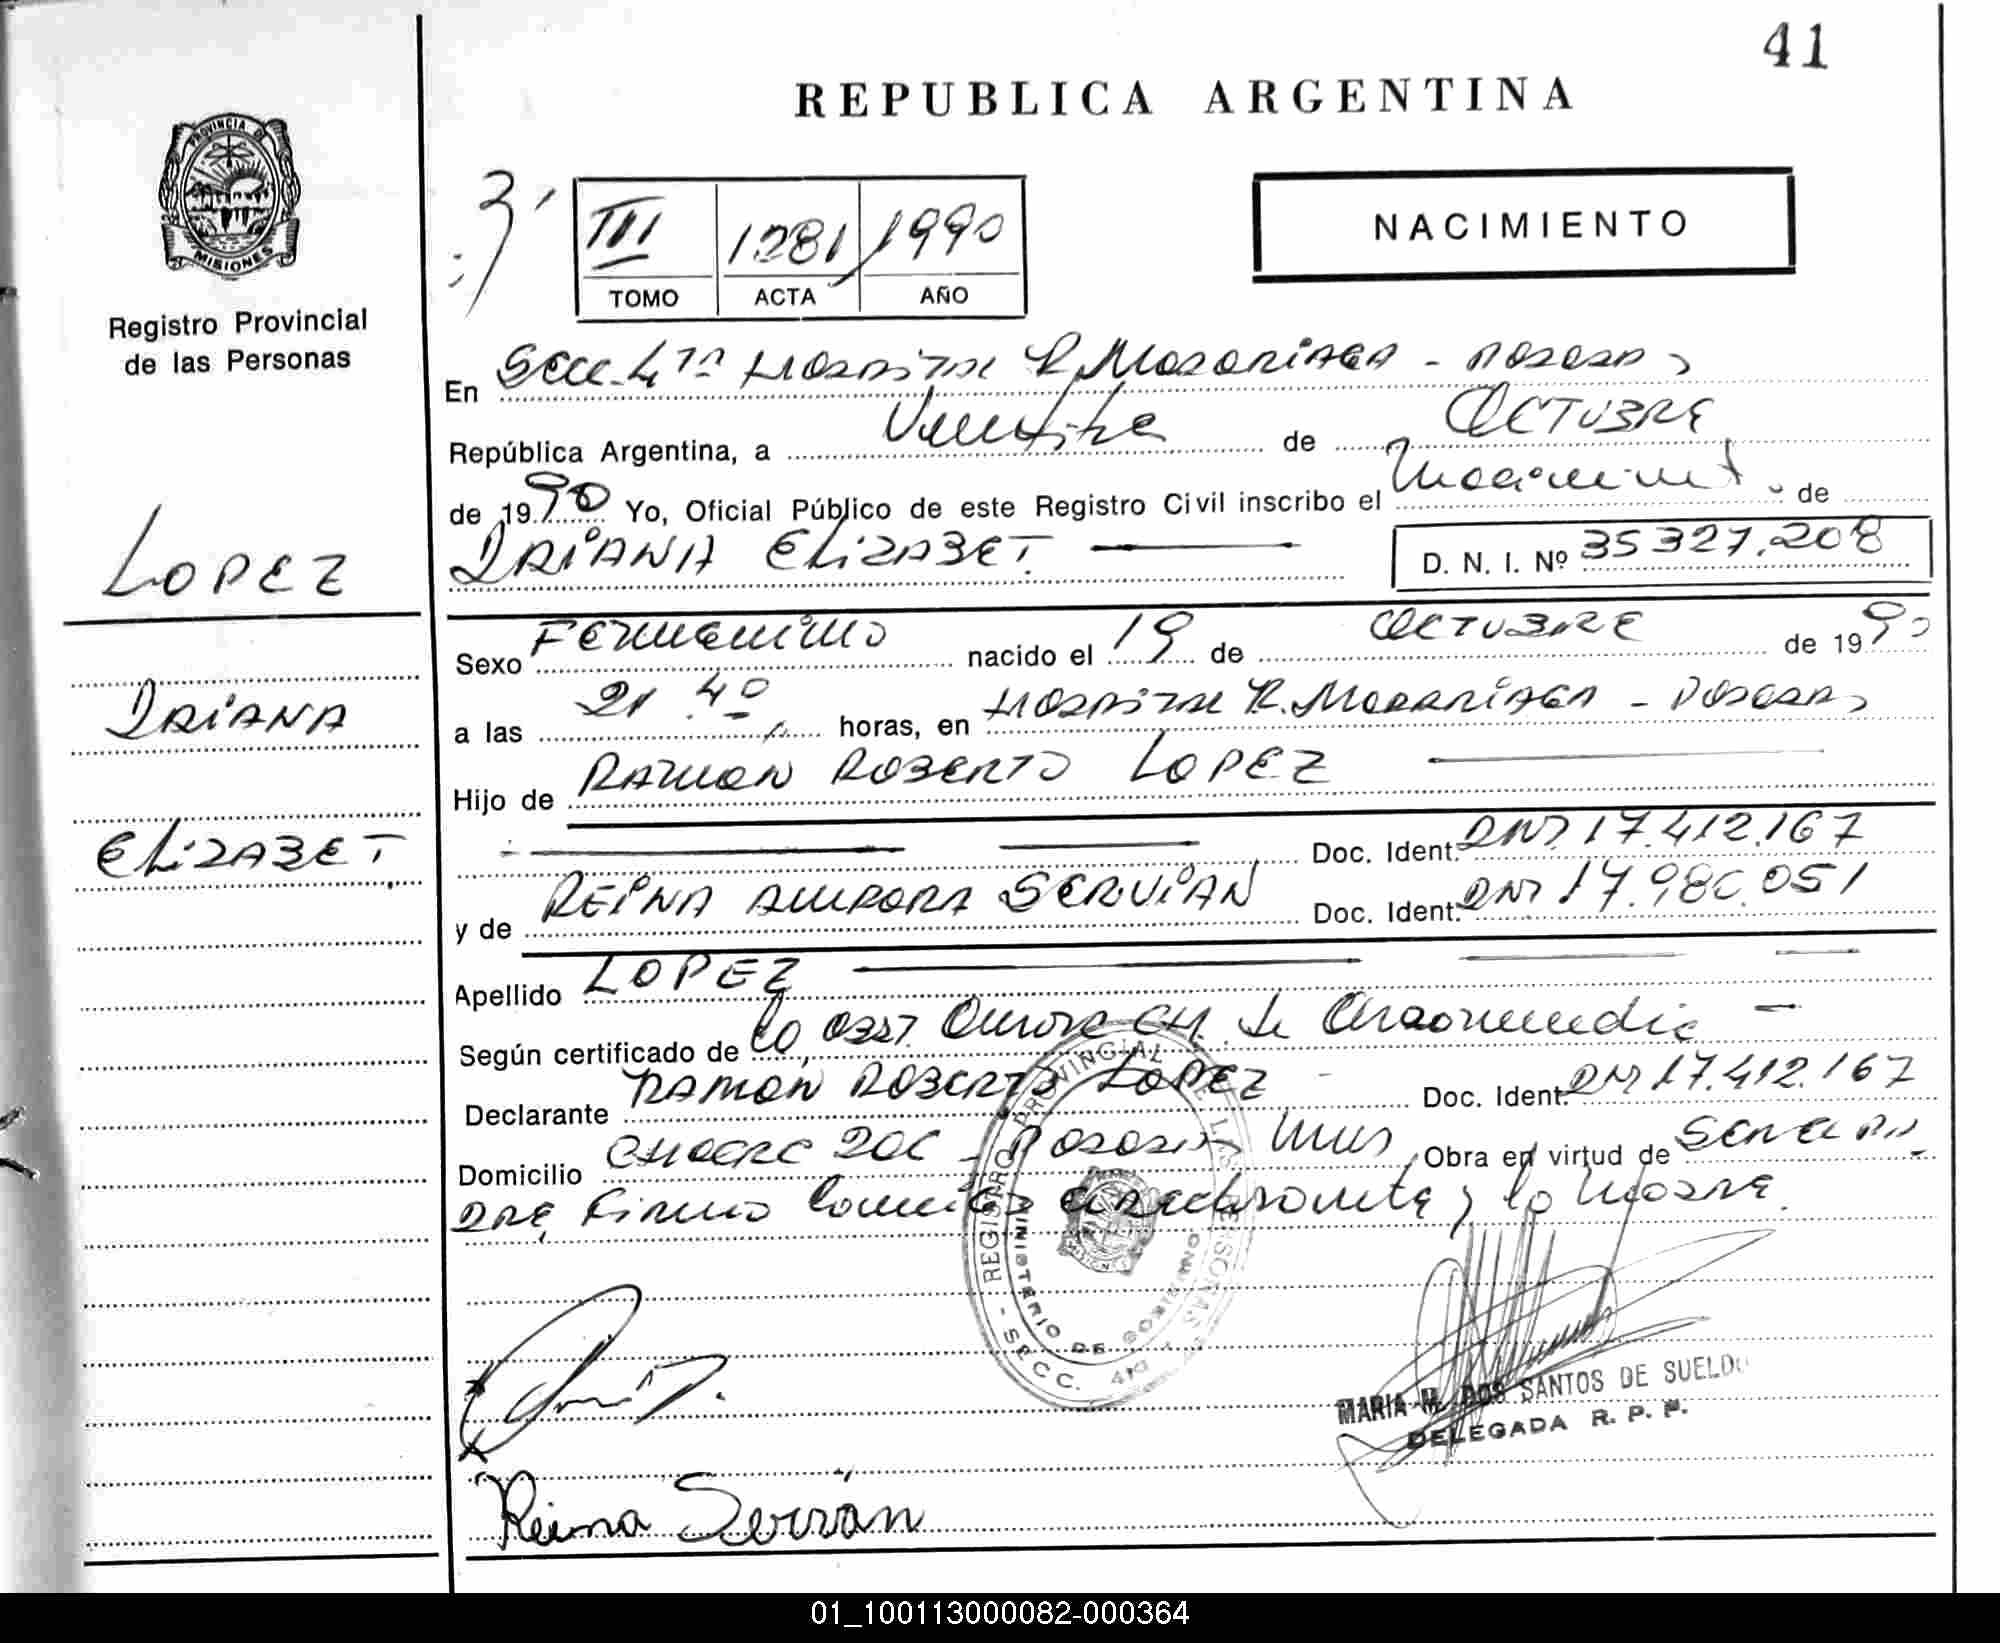 41
REPUBLICA ARGENTINA
PROVINCIA DE
MISIONES
Registro Provincial
de las Personas
III 1281 1990
TOMO ACTA AÑO
NACIMIENTO
En Secc. 4ta Hospital R. Madariaga - Posadas
República Argentina, a Veintitre de OCTUBRE
de 1990 Yo, Oficial Público de este Registro Civil inscribo el Nacimiento de
ELIZABET D. N. I. Nº 35327.208
LOPEZ
ELIZABET
Sexo FEMENINO nacido el 19 de OCTUBRE de 1990
a las 21.40 horas, en HOSPITAL R. MADARIAGA - POSADAS
Hijo de RAMON ROBERTO LOPEZ
Doc. Ident. DNI 17.412.167
y de REINA AURORA SERVIAN Doc. Ident. DNI 17.980.051
Apellido LOPEZ
Según certificado de la Obst.
Declarante RAMON ROBERTO LOPEZ Doc. Ident. DNI 17.412.167
Domicilio Posadas Mnes Obra en virtud de
firma y la Madre.
REGISTRO PROVINCIAL DE LAS PERSONAS
MINISTERIO DE GOBIERNO
SECC. 4ta
MARIA M. DOS SANTOS DE SUELDO
DELEGADA R. P. P.
Reina Servián
01_100113000082-000364